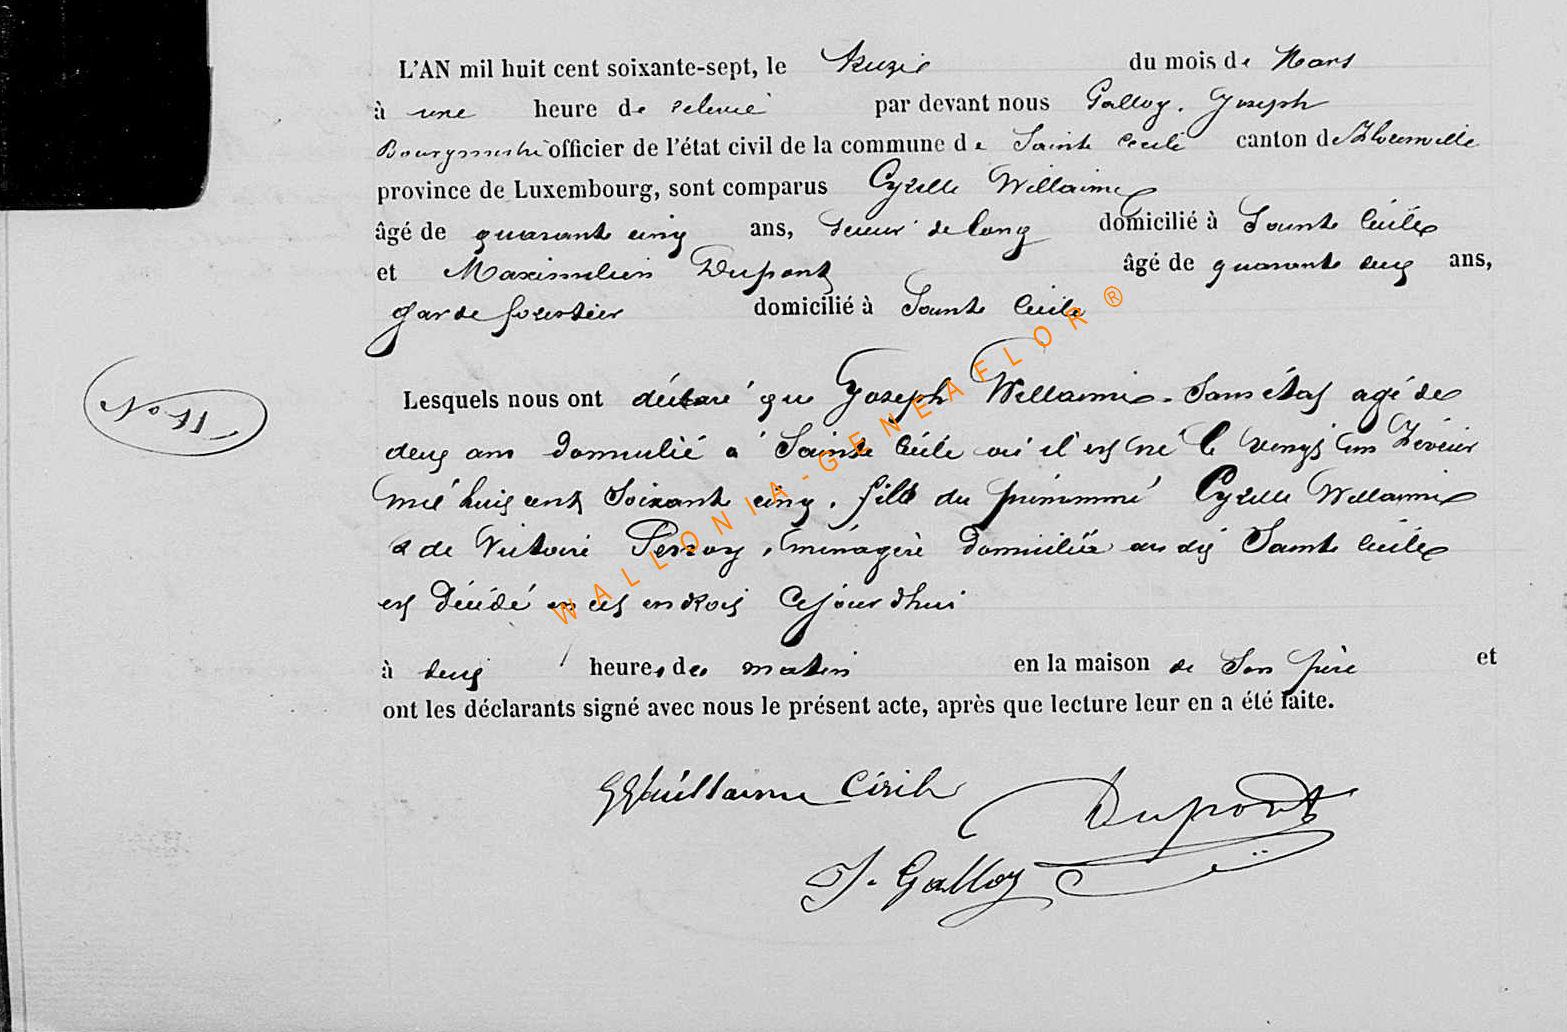 L'AN mil huit cent soixante-sept, le treize du mois de Mars
à une heure de relevée par devant nous Galloy, Joseph
Bourgmestre officier de l'état civil de la commune de Sainte Cecile canton de Florenville
province de Luxembourg, sont comparus Cyrille Willaime
âgé de quarante cinq ans, scieur de long domicilié à Sainte Cécile
et Maximilien Dupont âgé de quarante deux ans,
garde forestier domicilié à Sainte Cécile
N° 11
Lesquels nous ont déclaré que Joseph Willaime. Sans état agé de
deux ans domicilié à Sainte Cécile où il est né le vingt un Février
mil huit cent soixante cinq, fils du prénommé Cyrille Willaime
& de Victoire Perroy, ménagère domiciliée au dit Sainte Cécile
est décédé en cet endroit Cejourdhui
à deux heures du matin en la maison de son père et
ont les déclarants signé avec nous le présent acte, après que lecture leur en a été faite.
Cirile Dupont
J. Galloy
WALLONIA-GENEAFLOR®